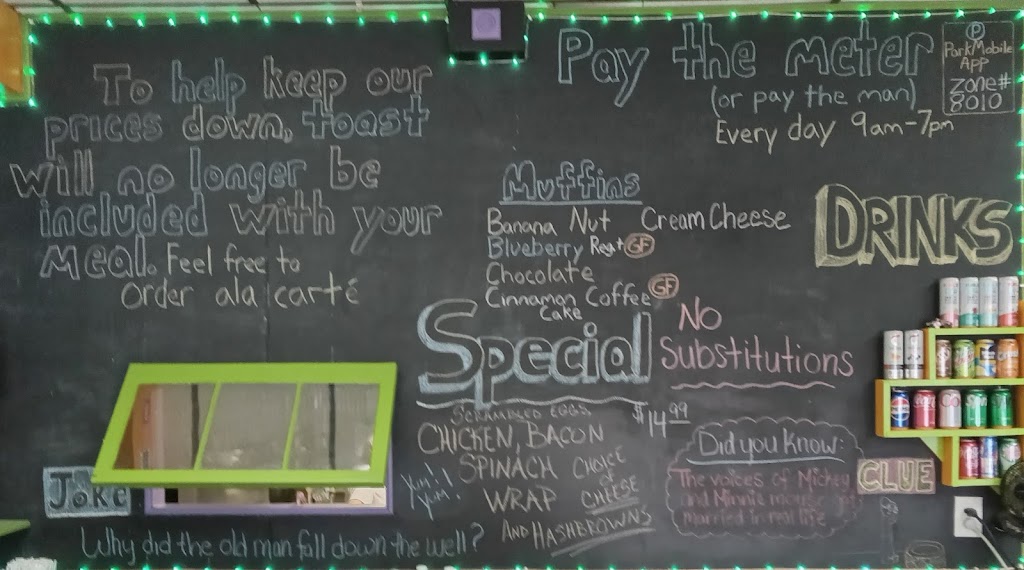 To help keep our
prices down, toast
will no longer be
included with your
meal. Feel free to
order ala carté
Pay the meter
(or pay the man)
Every day 9am-7pm
P
ParkMobile
APP
Zone#
8010
Muffins
Banana Nut Cream Cheese
Blueberry Reg+ GF
Chocolate
Cinnamon Coffee GF
Cake
DRINKS
Special
No
Substitutions
SCRAMBLED EGGS
$14.99
CHICKEN, BACON
SPINACH CHOICE
of
WRAP CHEESE
AND HASHBROWNS
Yum!!
Yum!
Did you know:
The voices of Mickey
and Minnie mouse got
married in real life
CLUE
Joke
Why did the old man fall down the well?